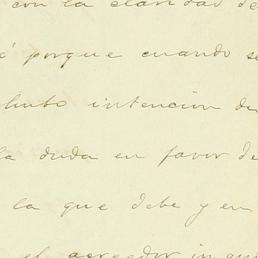 con la claridad de
porque cuando se
hubo intencion de
la duda en favor de
la que debe y en
el acreedor